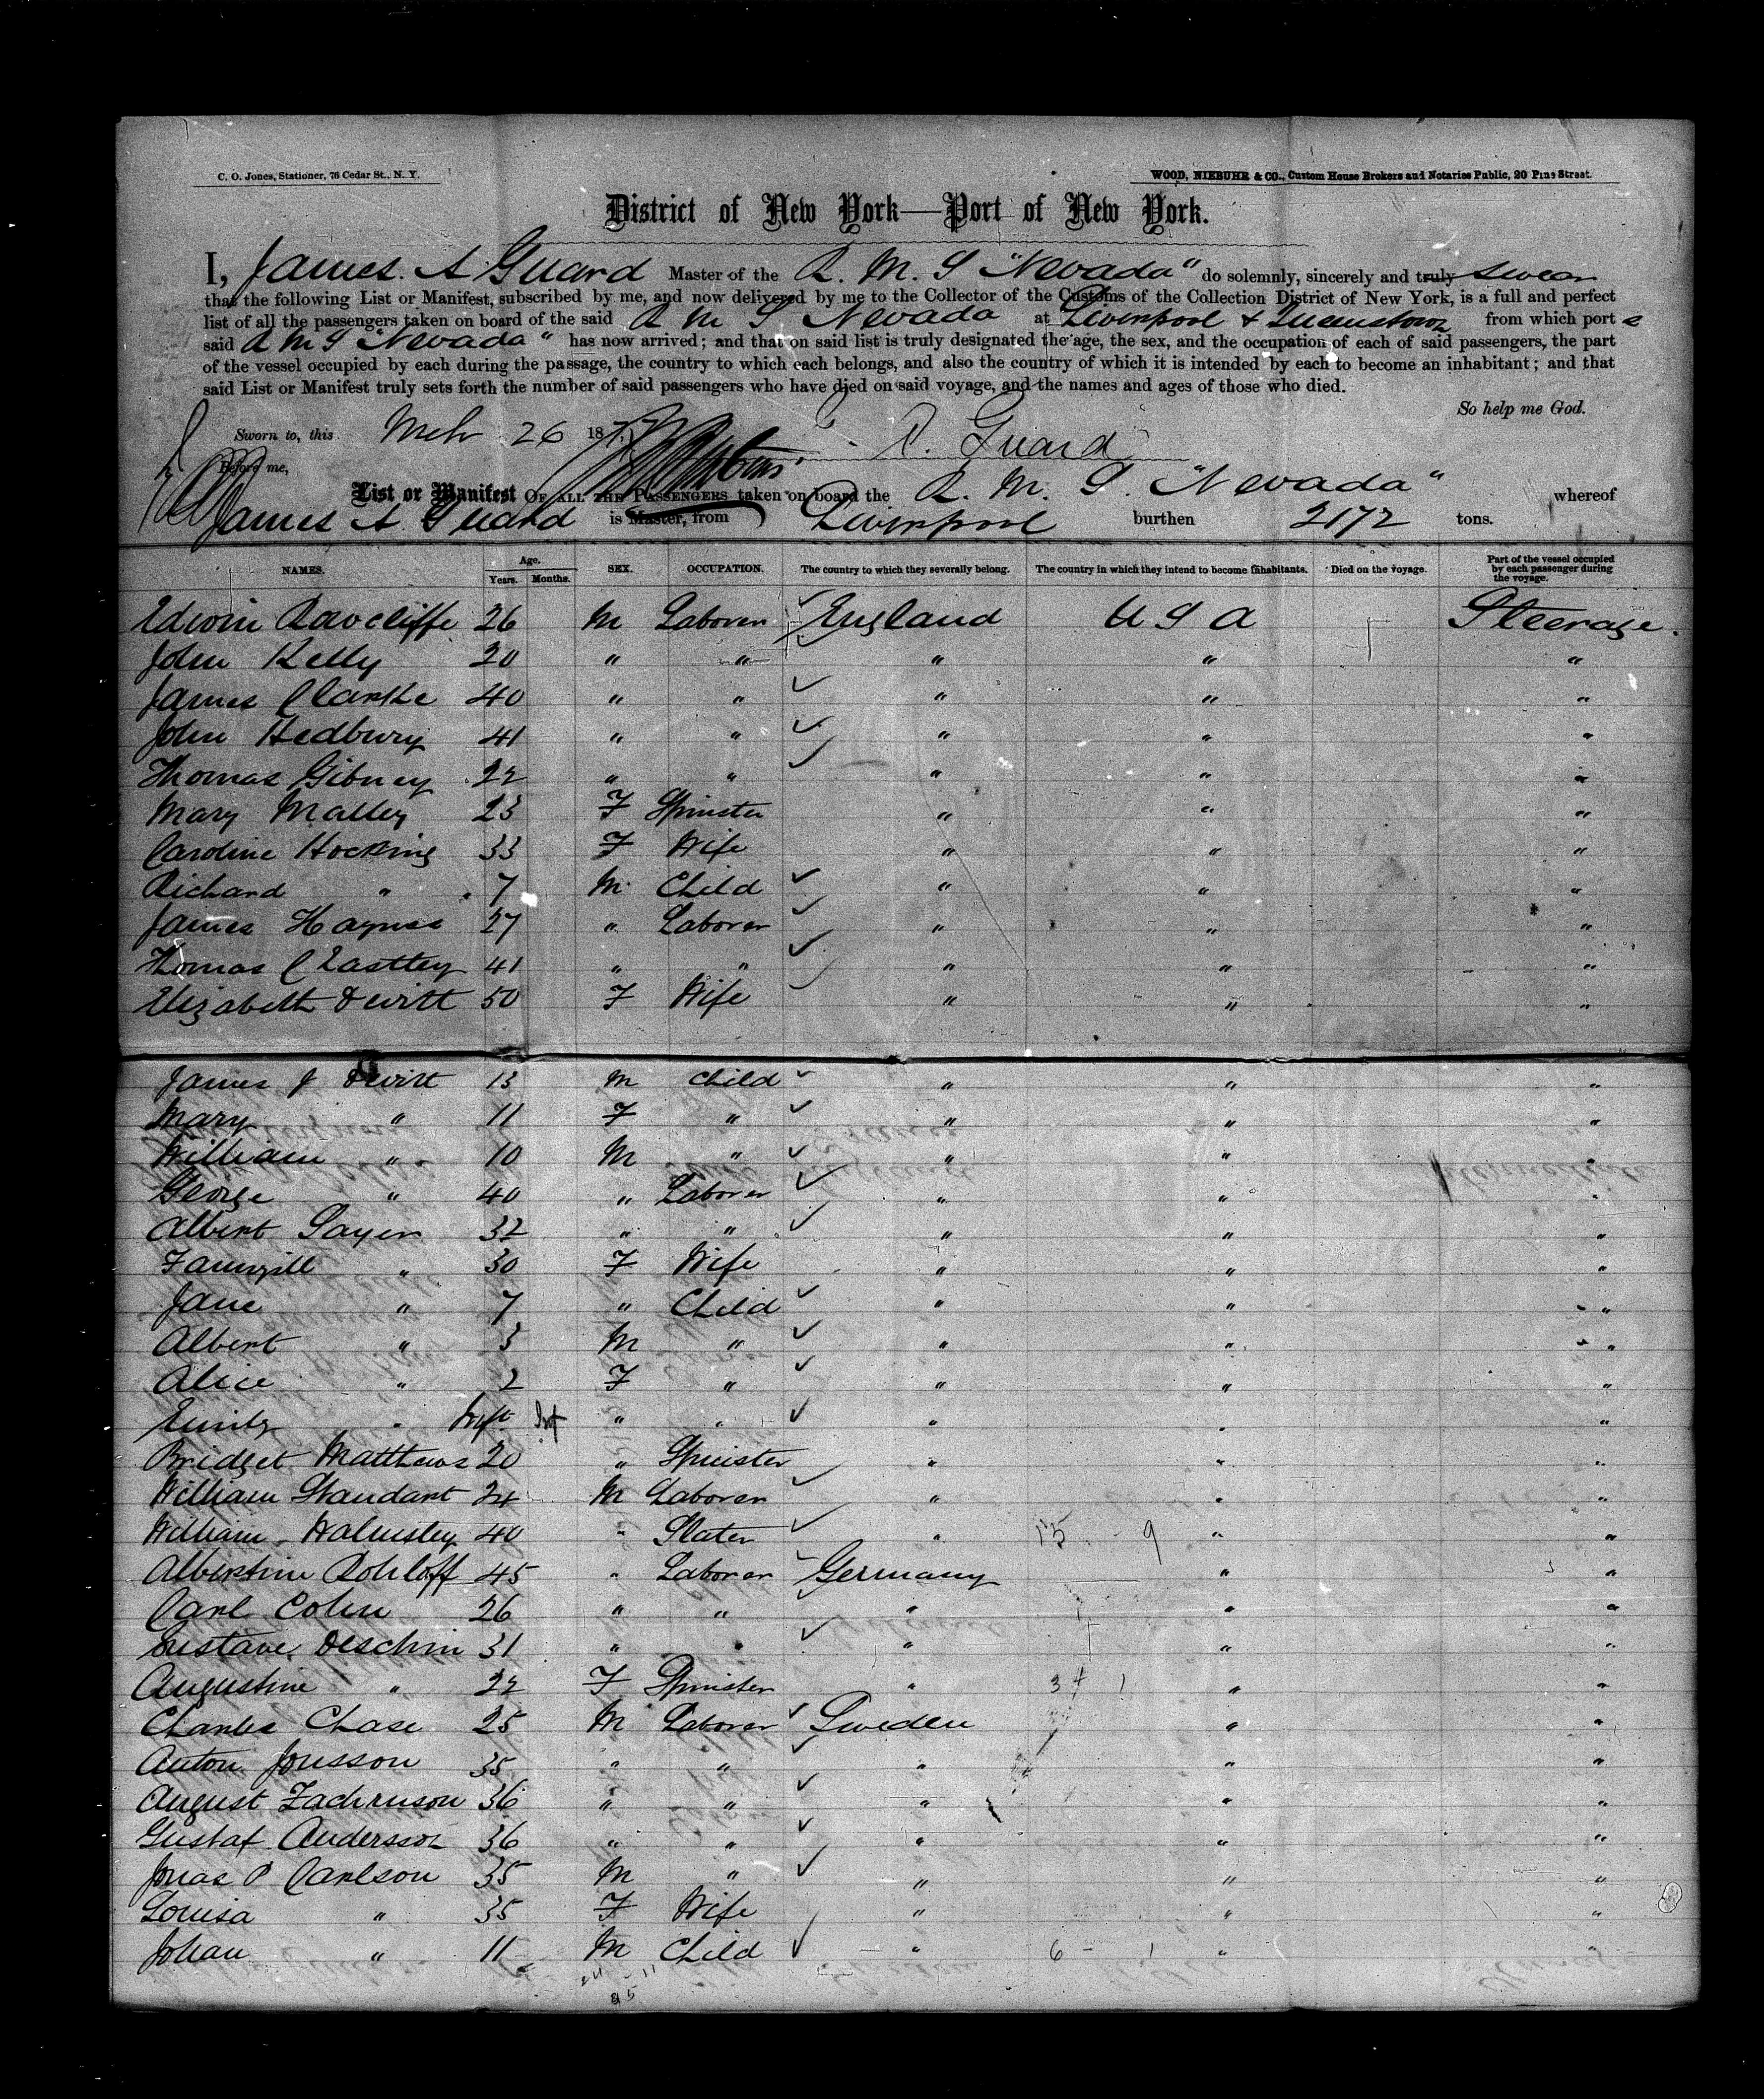 C. O. Jones, Stationer, 76 Cedar St., N. Y.
WOOD, NIEBUHR & CO., Custom House Brokers and Notaries Public, 20 Pine Street.
District of New York—Port of New York.
I, James A Guard Master of the R. M. S "Nevada" do solemnly, sincerely and truly swear
that the following List or Manifest, subscribed by me, and now delivered by me to the Collector of the Customs of the Collection District of New York, is a full and perfect
list of all the passengers taken on board of the said R M S Nevada at Liverpool & Queenstown from which port s
said R M S "Nevada" has now arrived; and that on said list is truly designated the age, the sex, and the occupation of each of said passengers, the part
of the vessel occupied by each during the passage, the country to which each belongs, and also the country of which it is intended by each to become an inhabitant; and that
said List or Manifest truly sets forth the number of said passengers who have died on said voyage, and the names and ages of those who died.
So help me God.
Sworn to, this Mch 26 187 Guard
Before me,
List or Manifest OF ALL THE PASSENGERS taken on board the R. M. S. "Nevada" whereof
James A Guard is Master, from Liverpool burthen 2172 tons.
NAMES. Age. Years. Months. SEX. OCCUPATION. The country to which they severally belong. The country in which they intend to become inhabitants. Died on the voyage. Part of the vessel occupied by each passenger during the voyage.
Edwin Ravcliffe 26 M Laborer England U S A Steerage.
John Kelly 20 " " " " "
James Clarke 40 " " " " "
John Hedbury 41 " " " " "
Thomas Gibney 22 " " " " "
Mary Malley 23 F Spinster " " "
Caroline Hocking 33 F Wife " " "
Richard " 7 M Child " " "
James Haynes 27 " Laborer " " "
Thomas Chastley 41 " " " " "
Elizabeth Dewitt 50 F Wife " " "
James J Dewitt 13 M Child " " "
Mary " 11 F " " " "
William " 10 M " " " "
George " 40 " Laborer " " "
Albert Sayer 32 " " " " "
" 30 F Wife " " "
Jane " 7 " Child " " "
Albert " 3 M " " " "
Alice " 2 F " " " "
Emily " Inft Inf " " " " "
Bridget Matthews 20 " Spinster " " "
William Standart 24 M Laborer " " "
William Walmsley 40 " Slater " 15 9 " "
Albertine Rohloff 45 " Laborer Germany " "
Carl Cohn 26 " " " " "
Gustave Deschin 31 " " " " "
Augustine " 22 F Spinster " 34 1 " "
Charles Chase 25 M Laborer Sweden " "
Anton Jonsson 35 " " " " "
August Zachrinson 36 " " " " "
Gustaf Andersson 36 " " " " "
Jonas P Carlson 35 M " " " "
Louisa " 35 F Wife " " "
Johan " 11 M Child " 6 - 1 " "
24 - 11